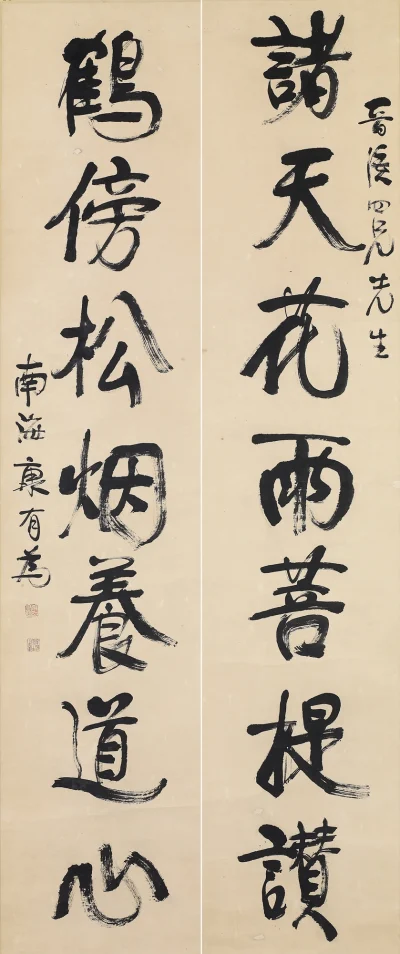 晉 四兄先生
諸天花雨菩提讚
鶴傍松烟養道心
南海康有為